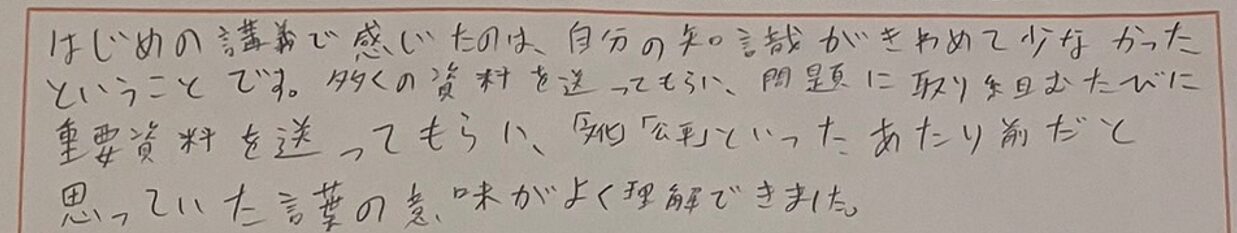 はじめの講義で感じたのは、自分の知識がきわめて少なかった
ということです。多くの資料を送ってもらい、問題に取り組むたびに
重要資料を送ってもらい、「文化」「公平」といったあたり前だと
思っていた言葉の意味がよく理解できました。